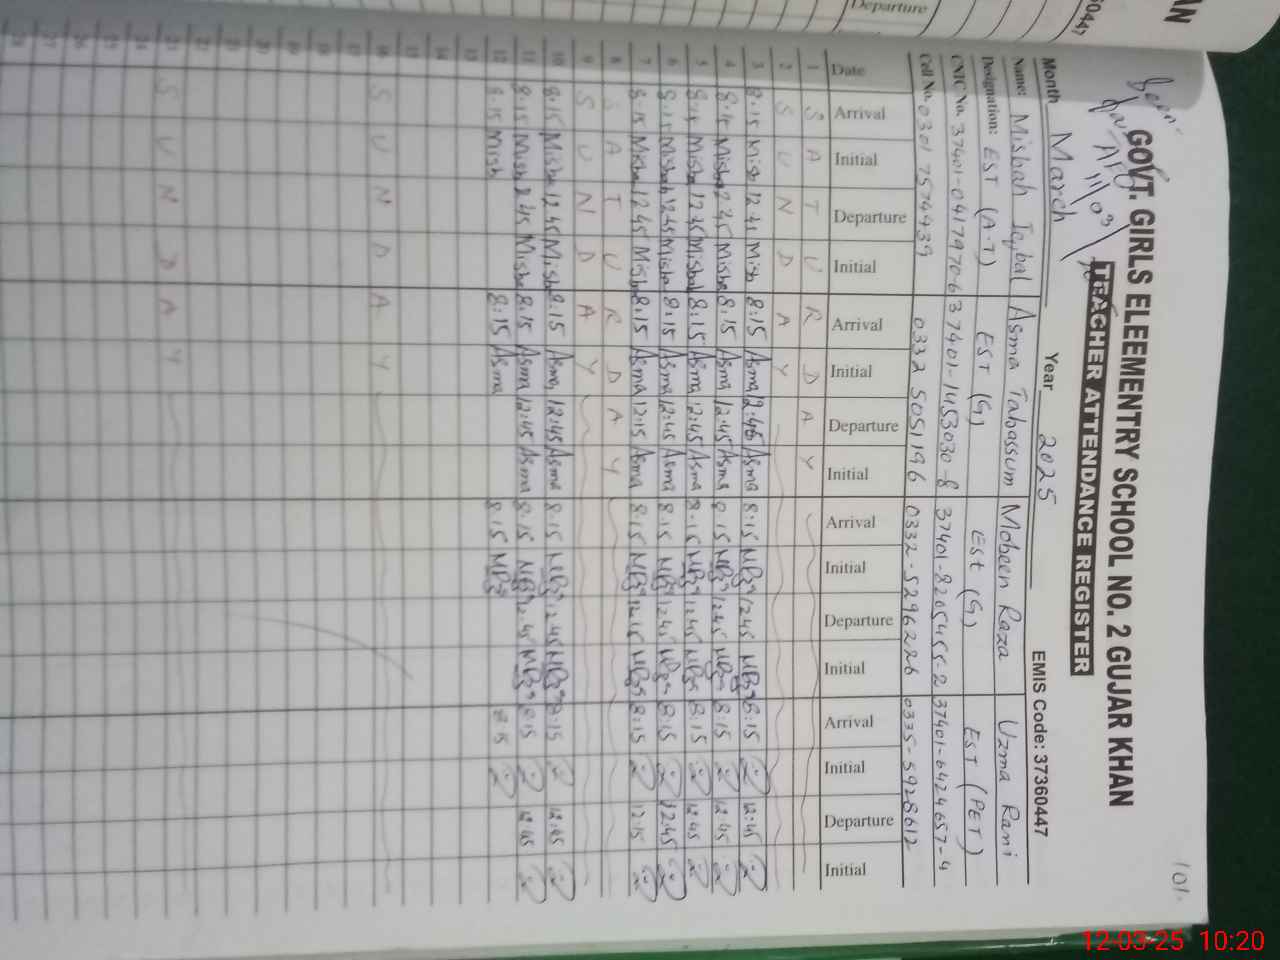 101.
Seen
11/03
GOVT. GIRLS ELEEMENTRY SCHOOL NO. 2 GUJAR KHAN
TEACHER ATTENDANCE REGISTER
Month March Year 2025 EMIS Code: 37360447
Name: Misbah Iqbal Asma Tabassum Mobeen Raza Uzma Rani
Designation: EST (A.T) EST (G) Est (G) EST (PET)
CNIC No. 37401-0417970-6 37401-1453030-8 37401-8205455-2 37401-6424657-4
Cell No. 0301 7574439 0332 5051196 0332-5296226 0335-5928612
Date Arrival Initial Departure Initial Arrival Initial Departure Initial Arrival Initial Departure Initial Arrival Initial Departure Initial
1 S A T U R D A Y
2 S U N D A Y
3 8:15 Misb 12:45 Misb 8:15 Asma 12:45 Asma 8:15 12:45 8:15 12:45
4 8:15 Misba 12:45 Misba 8:15 Asma 12:45 Asma 8:15 12:45 8:15 12:45
5 8:15 Misba 12:45 Misba 8:15 Asma 12:45 Asma 8:15 12:45 8:15 12:45
6 8:15 Misbah 12:45 Misba 8:15 Asma 12:45 Asma 8:15 12:45 8:15 12:45
7 8:15 Misba 12:45 Misb 8:15 Asma 12:15 Asma 8:15 12:15 8:15 12:15
8 S A T U R D A Y
9 S U N D A Y
10 8:15 Misba 12:45 Misba 8:15 Asma 12:45 Asma 8:15 12:45 8:15 12:45
11 8:15 Misba 12:45 Misba 8:15 Asma 12:45 Asma 8:15 12:45 8:15 12:45
12 8:15 Misb 8:15 Asma 8:15 8:15
13
14
15
16 S U N D A Y
17
18
19
20
21
22
23 S U N D A Y
24
25
26
27
28
Departure
12-03-25 10:20